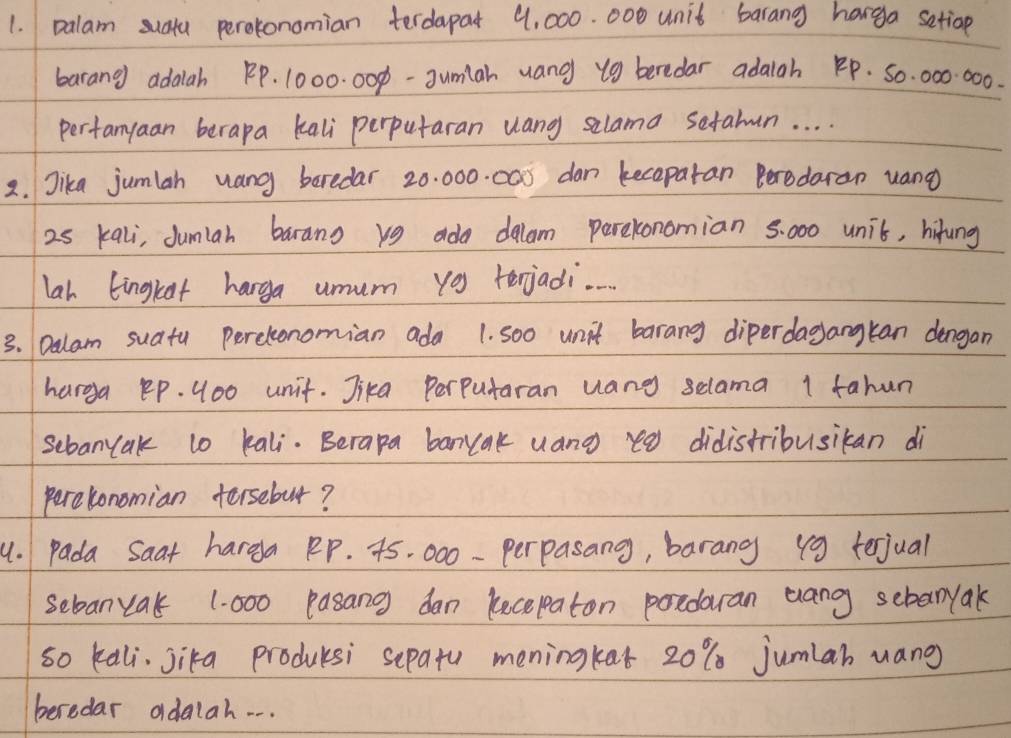 1. Dalam suatu perekonomian terdapat 4.000.000 unit barang harga setiap
barang adalah RP.1000.000 - Jumlah uang yg beredar adalah RP. 50.000.000-
pertanyaan berapa kali perputaran uang selama setahun ....
2. Jika jumlah uang beredar 20.000.000 dan kecepatan peredaran uang
25 kali, Jumlah barang yg ada dalam perekonomian 5.000 unit, hitung
lah tingkat harga umum yg terjadi....
3. Dalam suatu perekonomian ada 1.500 unit barang diperdagangkan dengan
harga RP. 400 unit. Jika Perputaran uang selama 1 tahun
sebanyak 10 kali. Berapa banyak uang yg didistribusikan di
perekonomian tersebut?
4. Pada saat harga RP. 75.000 - perpasang, barang yg terjual
sebanyak 1.000 pasang dan kecepatan peredaran uang sebanyak
50 kali. jika produksi sepatu meningkat 20% jumlah uang
beredar adalah ...